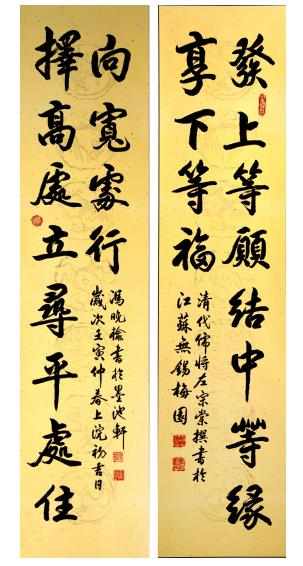 發上等願結中等緣
享下等福
清代儒將左宗棠撰書於
江蘇無錫梅園
擇高處立尋平處住
向寬處行
馮曉榆書於墨池軒
歲次壬寅仲春上浣初吉日